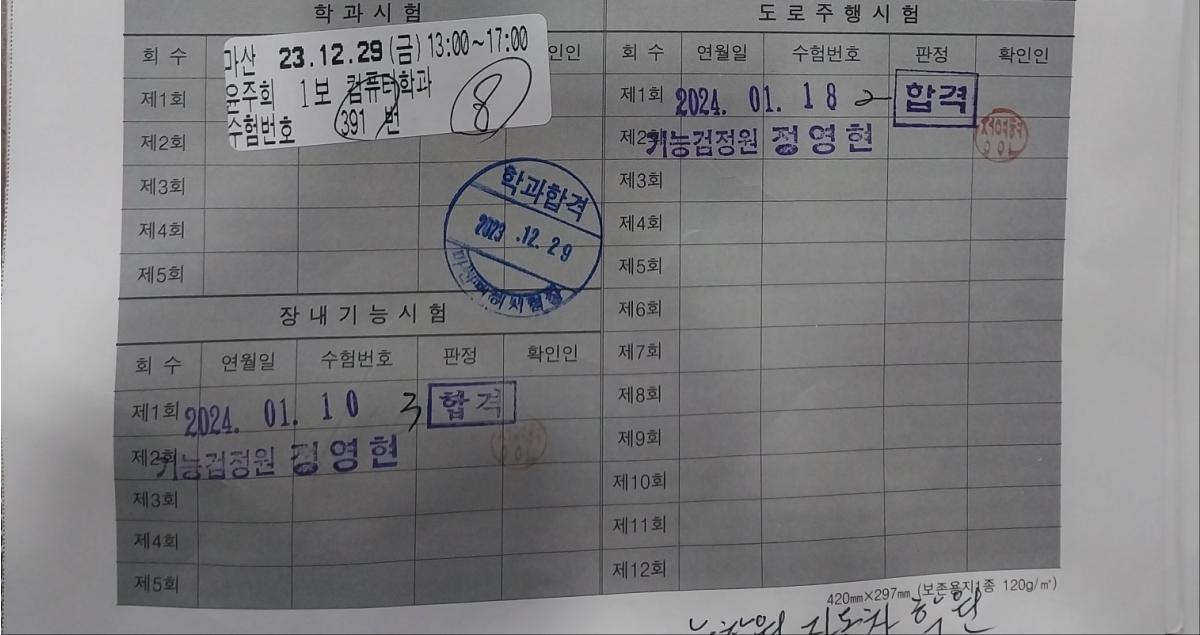 학과시험
마산 23.12.29(금) 13:00~17:00
윤주회 1보 컴퓨터학과
수험번호 391 번
8
회 수
인인
제1회
제2회
제3회
제4회
제5회
학과합격
2023 .12. 29
장내기능시험
회 수 연월일 수험번호 판정 확인인
제1회 2024. 01. 10 3 합격
제2회 기능검정원 정영현
제3회
제4회
제5회
도로주행시험
회 수 연월일 수험번호 판정 확인인
제1회 2024. 01. 18 2 합격
제2회 기능검정원 정영현
제3회
제4회
제5회
제6회
제7회
제8회
제9회
제10회
제11회
제12회
420㎜×297㎜ (보존용지1종 120g/㎡)
자동차 학원